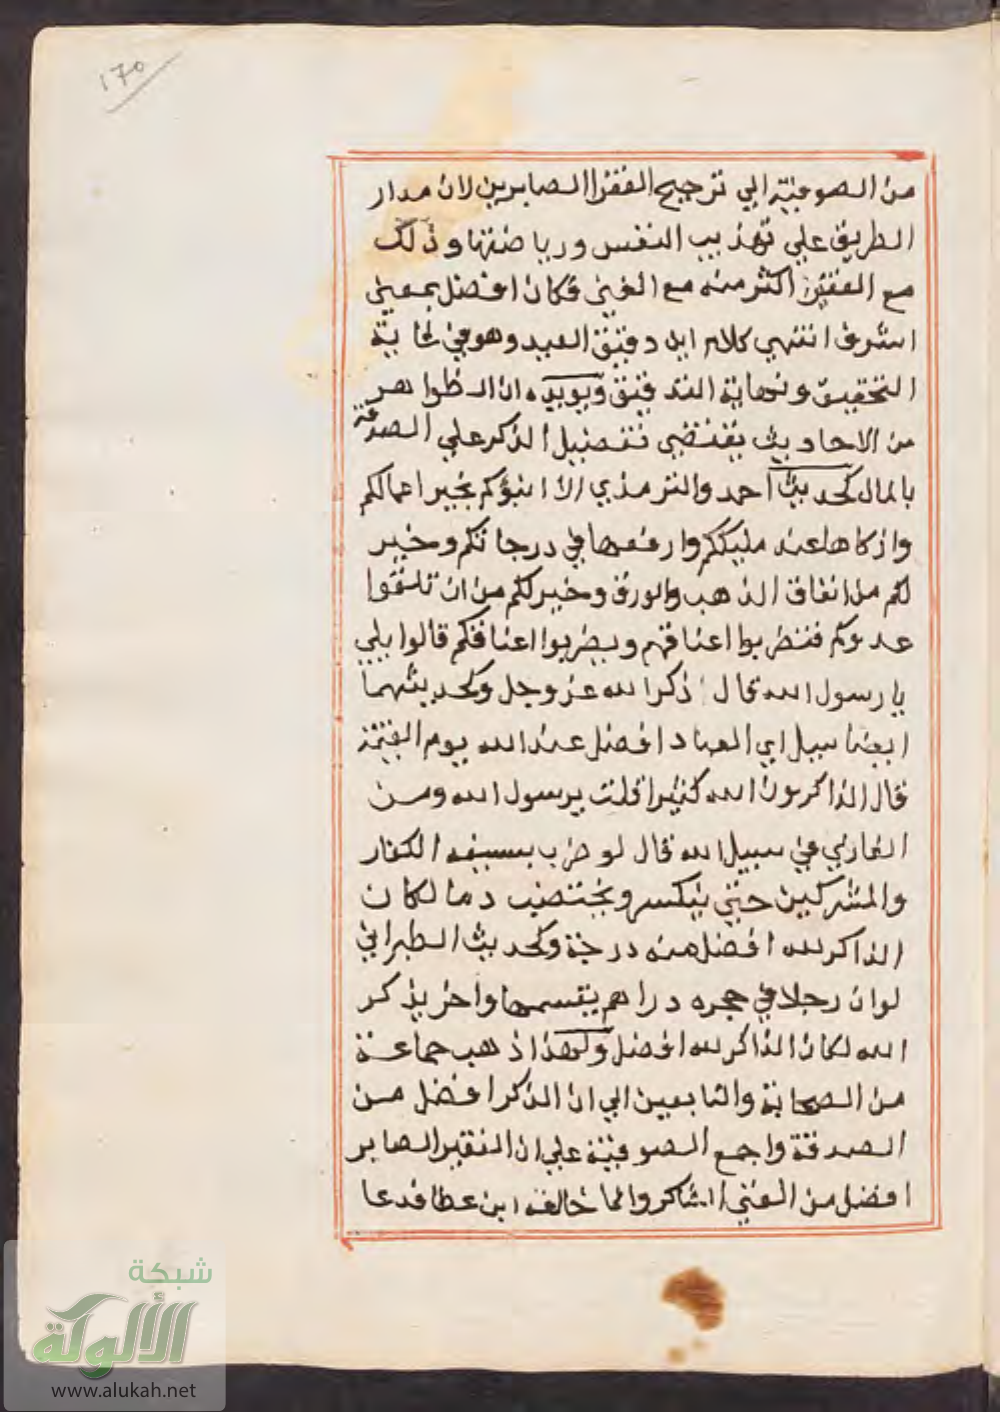 ١٦٥
من الصوفية الي ترجيح الفقرا الصابرين لان مدار
الطريق علي تهذيب النفس ورياضتها وذلك
مع الفقر اكثر منه مع الغني فكان افضل بمعني
اشرف انتهي كلام ابن دقيق العيد وهو في غاية
التحقيق ونهاية التدقيق ويويده ان الظواهر
من الاحاديث يقتضي تفضيل الذكر علي الصدقة
بالمال كحديث احمد والترمذي الا انبؤكم بخير اعمالكم
وازكاها عند مليككم وارفعها في درجاتكم وخير
لكم من انفاق الذهب والورق وخير لكم من ان تلقوا
عدوكم فتضربوا اعناقهم ويضربوا اعناقكم قالوا بلي
يا رسول الله قال ذكر الله عز وجل وكحديثهما
ايضا سيل اي العباد افضل عند الله يوم القيمة
قال الذاكرون الله كثيرا قلت يرسول الله ومن
الغازي في سبيل الله قال لو ضرب بسيفه الكفار
والمشركين حتي ينكسر ويختضب دما لكان
الذاكر لله افضل منه درجة وكحديث الطبراني
لو ان رجلا في حجره دراهم يقسمها واخر يذكر
الله لكان الذاكر لله افضل ولهذا ذهب جماعة
من الصحابة والتابعين الي ان الذكر افضل من
الصدقة واجمع الصوفية علي ان الفقير الصابر
افضل من الغني الشاكر ولما خالفه ابن عطا فدعا
شبكة
الألوكة
www.alukah.net